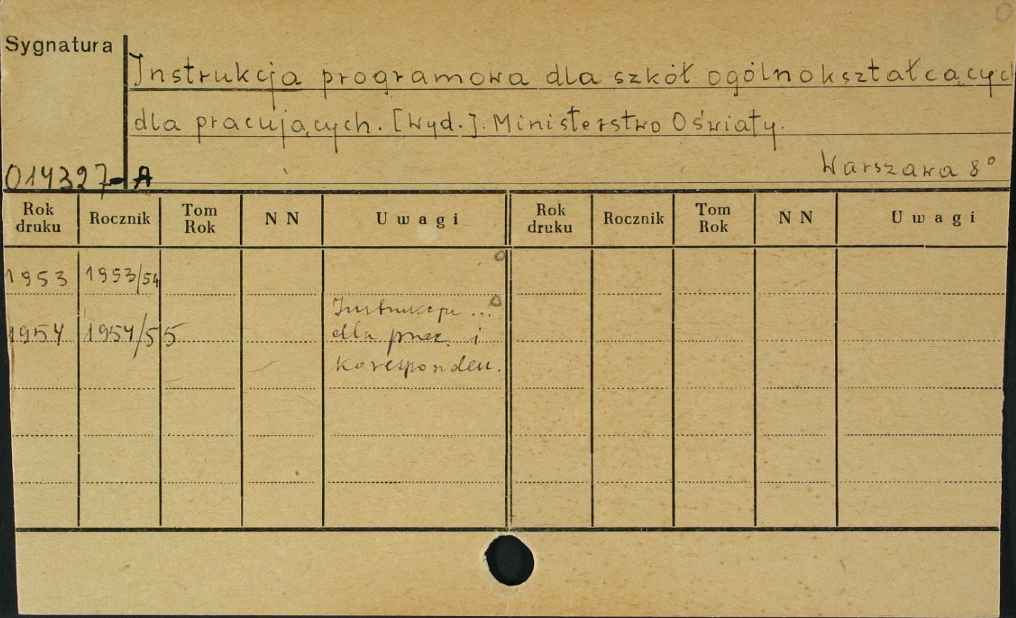 Sygnatura
Instrukcja programowa dla szkół ogólnokształcących
dla pracujących. [Wyd.]. Ministerstwo Oświaty.
Warszawa 8°
014327-A
Rok druku Rocznik Tom Rok NN Uwagi Rok druku Rocznik Tom Rok NN Uwagi
1953 1953/54
1954 1954/55
Instrukcja ...
dla prac. i
koresponden.